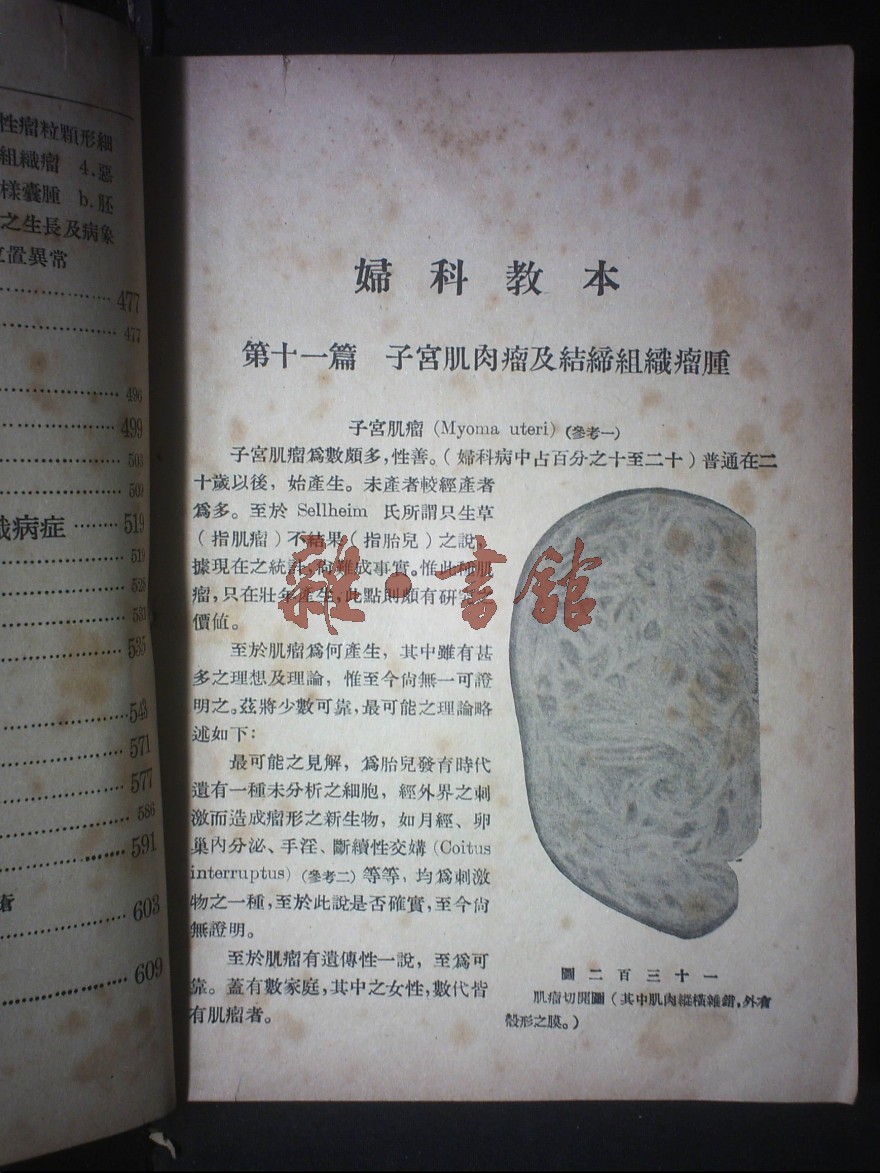 性瘤粒顆形細
組織瘤 4.惡
樣囊腫 b.胚
之生長及病象
位置異常
477
477
496
499
503
509
織病症 519
519
525
531
535
543
571
577
586
591
603
609
婦科教本
第十一篇 子宮肌肉瘤及結締組織瘤腫
子宮肌瘤 (Myoma uteri) (參考一)
子宮肌瘤爲數頗多,性善。(婦科病中占百分之十至二十)普通在二
十歲以後,始產生。未產者較經產者
爲多。至於 Sellheim 氏所謂只生草
(指肌瘤)不結果(指胎兒)之說,
據現在之統計,尚難成事實。惟此種肌
瘤,只在壯年產生,此點則頗有研究
價值。
至於肌瘤爲何產生,其中雖有甚
多之理想及理論,惟至今尙無一可證
明之。茲將少數可靠,最可能之理論略
述如下:
最可能之見解,爲胎兒發育時代
遺有一種未分析之細胞,經外界之刺
激而造成瘤形之新生物,如月經、卵
巢內分泌、手淫、斷續性交媾 (Coitus
interruptus) (參考二) 等等,均爲刺激
物之一種,至於此說是否確實,至今尙
無證明。
至於肌瘤有遺傳性一說,至爲可
靠。蓋有數家庭,其中之女性,數代皆
有肌瘤者。
圖二百三十一
肌瘤切開圖(其中肌肉縱橫雜錯,外有
殼形之膜。)
雜·書館